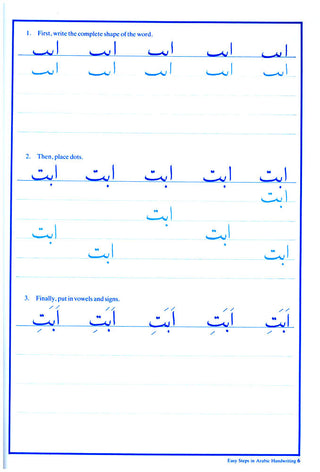 1. First, write the complete shape of the word.
اٮٮ اٮٮ اٮٮ اٮٮ اٮٮ
اٮٮ اٮٮ اٮٮ اٮٮ اٮٮ
2. Then, place dots.
ابت ابت ابت ابت ابت
ابت
ابت
ابت ابت
ابت ابت
3. Finally, put in vowels and signs.
اَبَتِ اَبَتِ اَبَتِ اَبَتِ اَبَتِ
Easy Steps in Arabic Handwriting 6